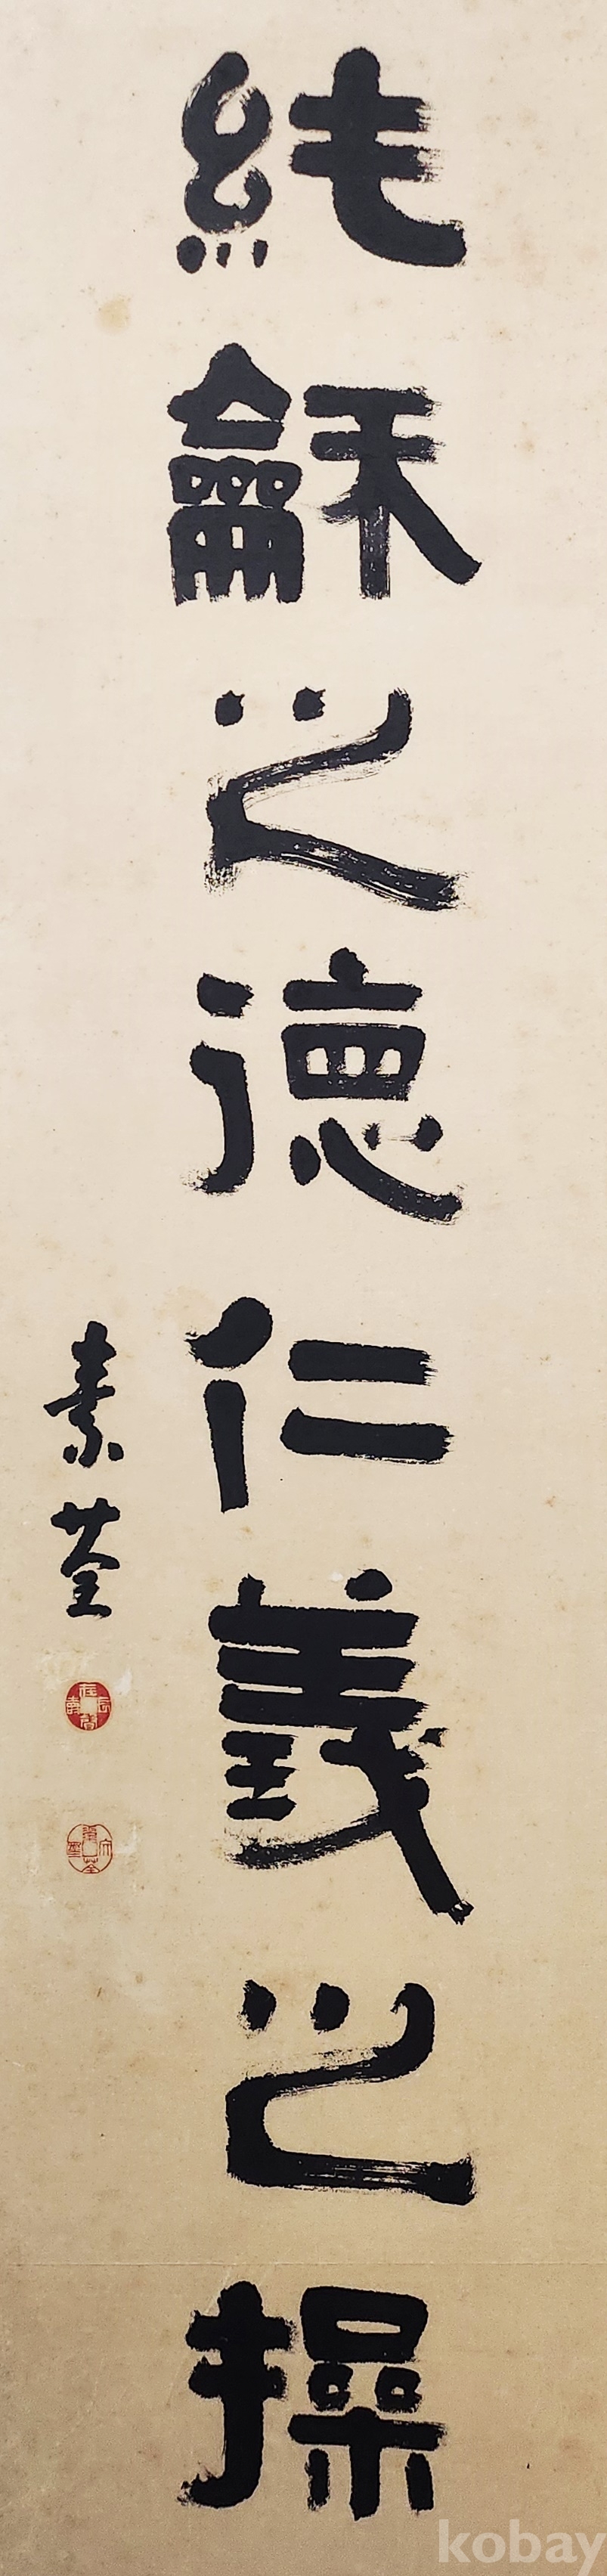 純龢之德仁義之操
素荃
kobay